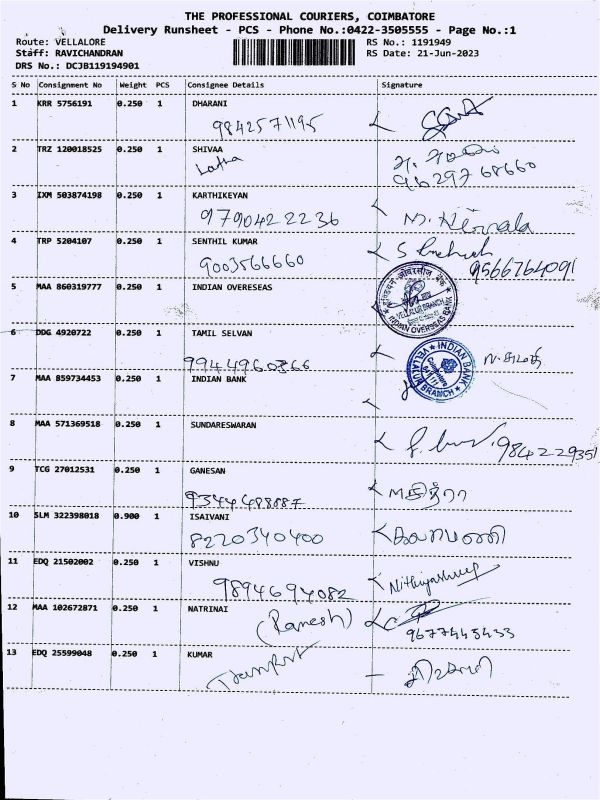 THE PROFESSIONAL COURIERS, COIMBATORE
Delivery Runsheet - PCS - Phone No.:0422-3505555 - Page No.:1
Route: VELLALORE RS No.: 1191949
Staff: RAVICHANDRAN RS Date: 21-Jun-2023
DRS No.: DCJB119194901
S No Consignment No Weight PCS Consignee Details Signature
1 KRR 5756191 0.250 1 DHARANI
9842571195
2 TRZ 120018525 0.250 1 SHIVAA
Latha 9629768660
3 IXM 503874198 0.250 1 KARTHIKEYAN
9790422236 M. Nirmala
4 TRP 5204107 0.250 1 SENTHIL KUMAR
9003566660 9566764091
5 MAA 860319777 0.250 1 INDIAN OVERESEAS
VELLALUR BRANCH
INDIAN OVERSEAS BANK
6 DDG 4920722 0.250 1 TAMIL SELVAN
9944960366
7 MAA 859734453 0.250 1 INDIAN BANK
INDIAN BANK
VELLALUR BRANCH
8 MAA 571369518 0.250 1 SUNDARESWARAN
984229351
9 TCG 27012531 0.250 1 GANESAN
9344488887
10 SLM 322398018 0.900 1 ISAIVANI
8220340400 கலாமணி
11 EDQ 21502002 0.250 1 VISHNU
9894694082
12 MAA 102672871 0.250 1 NATRINAI
(Ramesh) 9677445433
13 EDQ 25599048 0.250 1 KUMAR
Transport